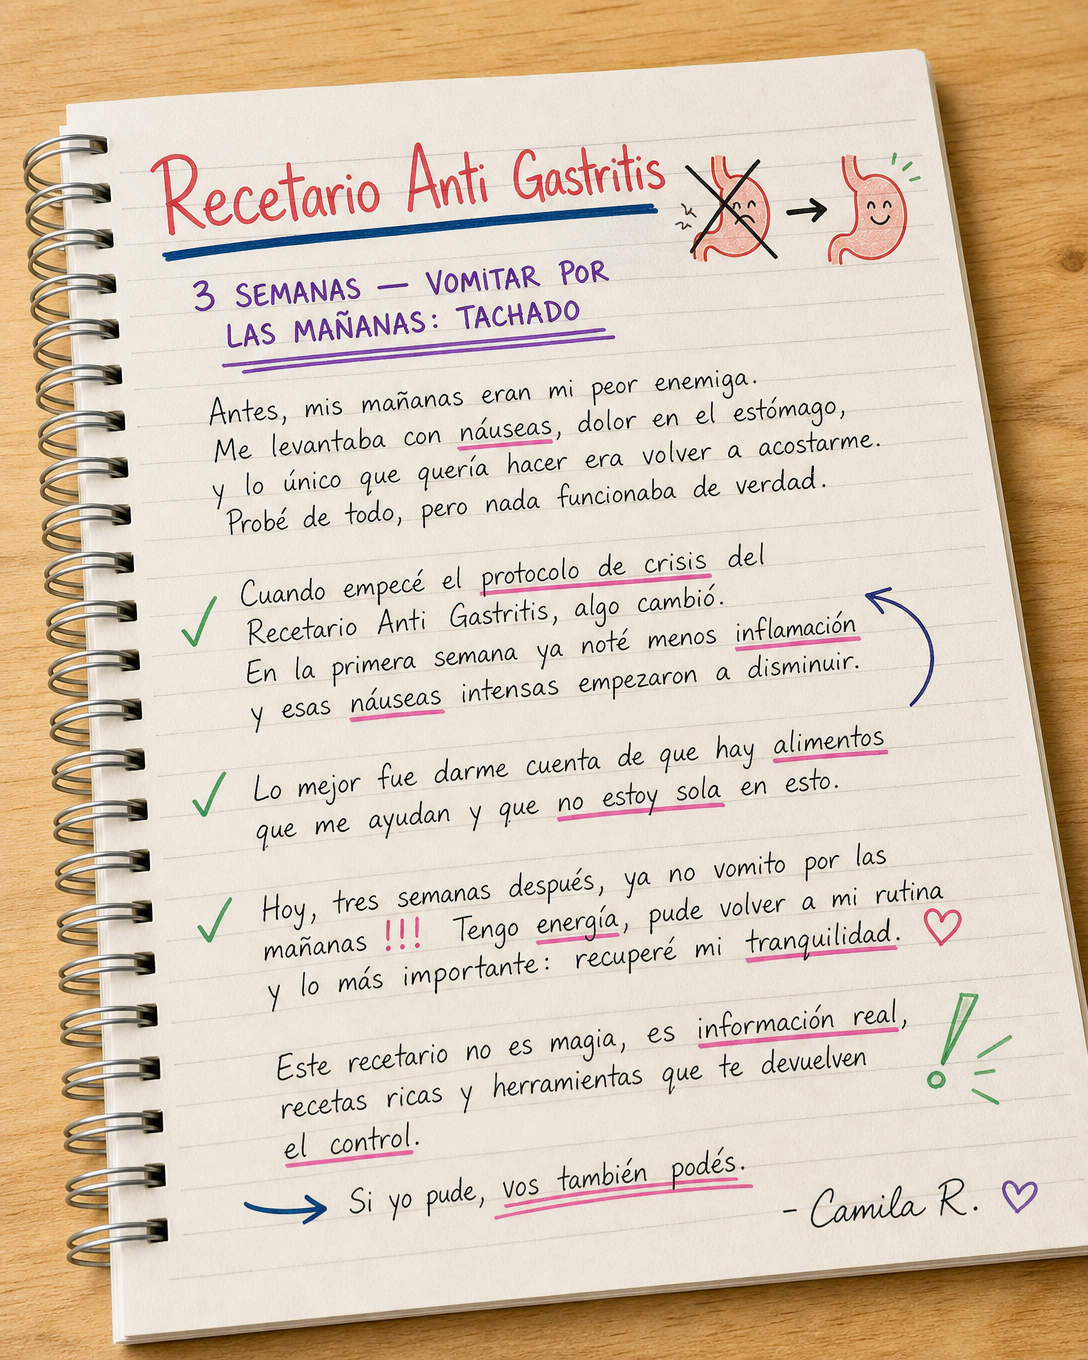 Recetario Anti Gastritis
3 SEMANAS — VOMITAR POR
LAS MAÑANAS: TACHADO
Antes, mis mañanas eran mi peor enemiga.
Me levantaba con náuseas, dolor en el estómago,
y lo único que quería hacer era volver a acostarme.
Probé de todo, pero nada funcionaba de verdad.
Cuando empecé el protocolo de crisis del
Recetario Anti Gastritis, algo cambió.
En la primera semana ya noté menos inflamación
y esas náuseas intensas empezaron a disminuir.
Lo mejor fue darme cuenta de que hay alimentos
que me ayudan y que no estoy sola en esto.
Hoy, tres semanas después, ya no vomito por las
mañanas !!! Tengo energía, pude volver a mi rutina
y lo más importante: recuperé mi tranquilidad.
Este recetario no es magia, es información real,
recetas ricas y herramientas que te devuelven
el control.
Si yo pude, vos también podés.
- Camila R.